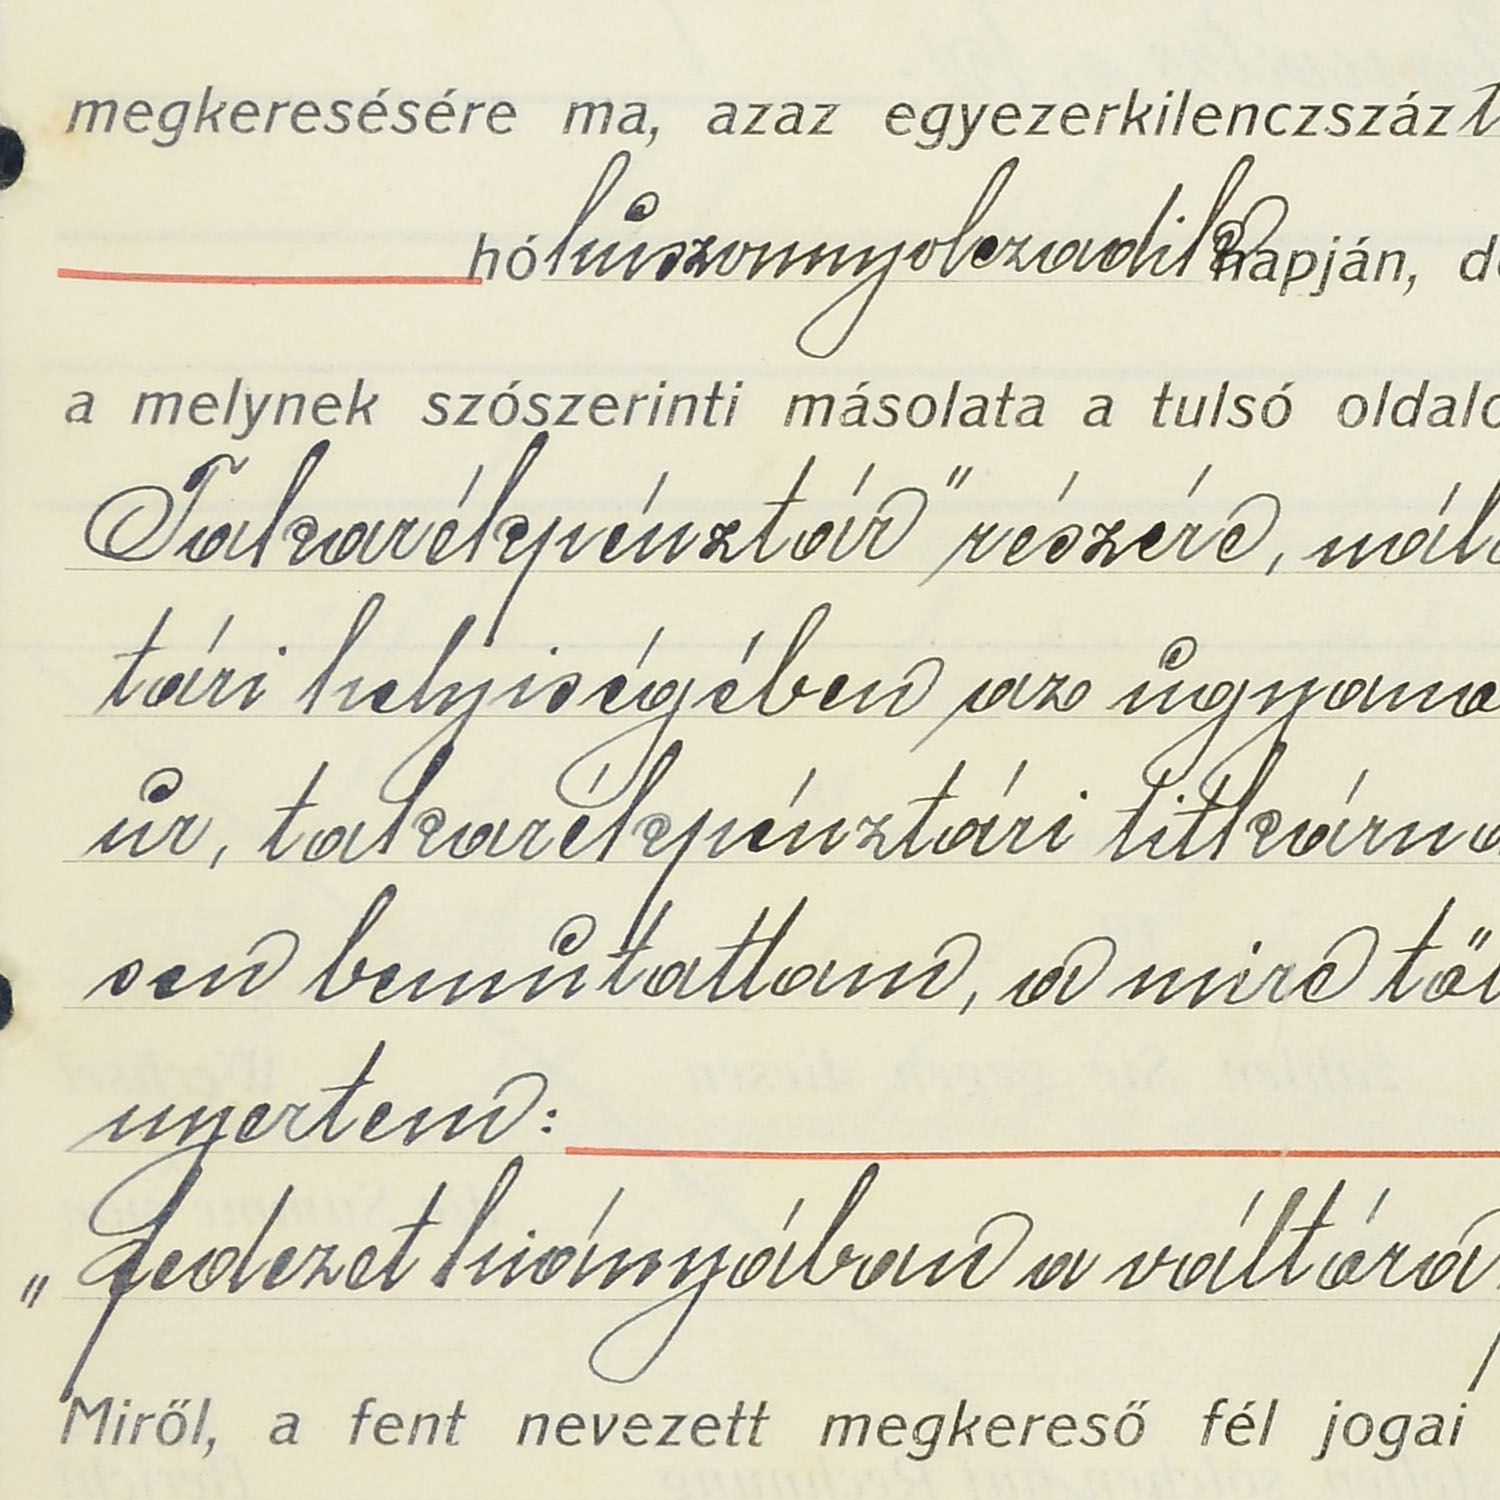 megkeresésére ma, azaz egyezerkilenczszáz
hó húszonnyolczadik napján,
a melynek szószerinti másolata a tulsó
Takarékpénztár" részére,
tári helyiségében az
úr, takarékpénztári
sen bemutattam, a mire
nyertem:
„Fedezet hiányában a váltóra
Miről, a fent nevezett megkereső fél jogai